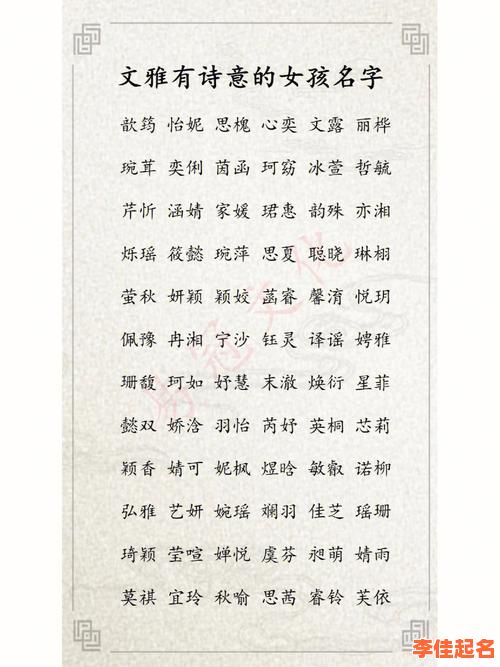 文雅有诗意的女孩名字
歆筠 怡妮 思槐 心奕 文露 丽桦
琬茸 奕俐 茵函 珂窈 冰萱 哲毓
芹忻 涵婧 家媛 珺惠 韵殊 亦湘
烁瑶 筱懿 琬萍 思夏 聪晓 琳栩
萤秋 妍颖 颖姣 菡睿 馨淯 悦玥
佩豫 冉湘 宁沙 钰灵 译谣 娉雅
珊馥 珂如 妤慧 末澈 焕衍 星菲
懿双 娇浛 羽怡 芮妤 英桐 芯莉
颖香 婧可 妮枫 煜晗 敏叡 诺柳
弘雅 艺妍 婉瑶 斓羽 佳芝 瑶珊
琦颖 莹喧 婵悦 虞芬 昶萌 婧雨
莫祺 宜玲 秋喻 思茜 睿铃 芙依
李佳起名